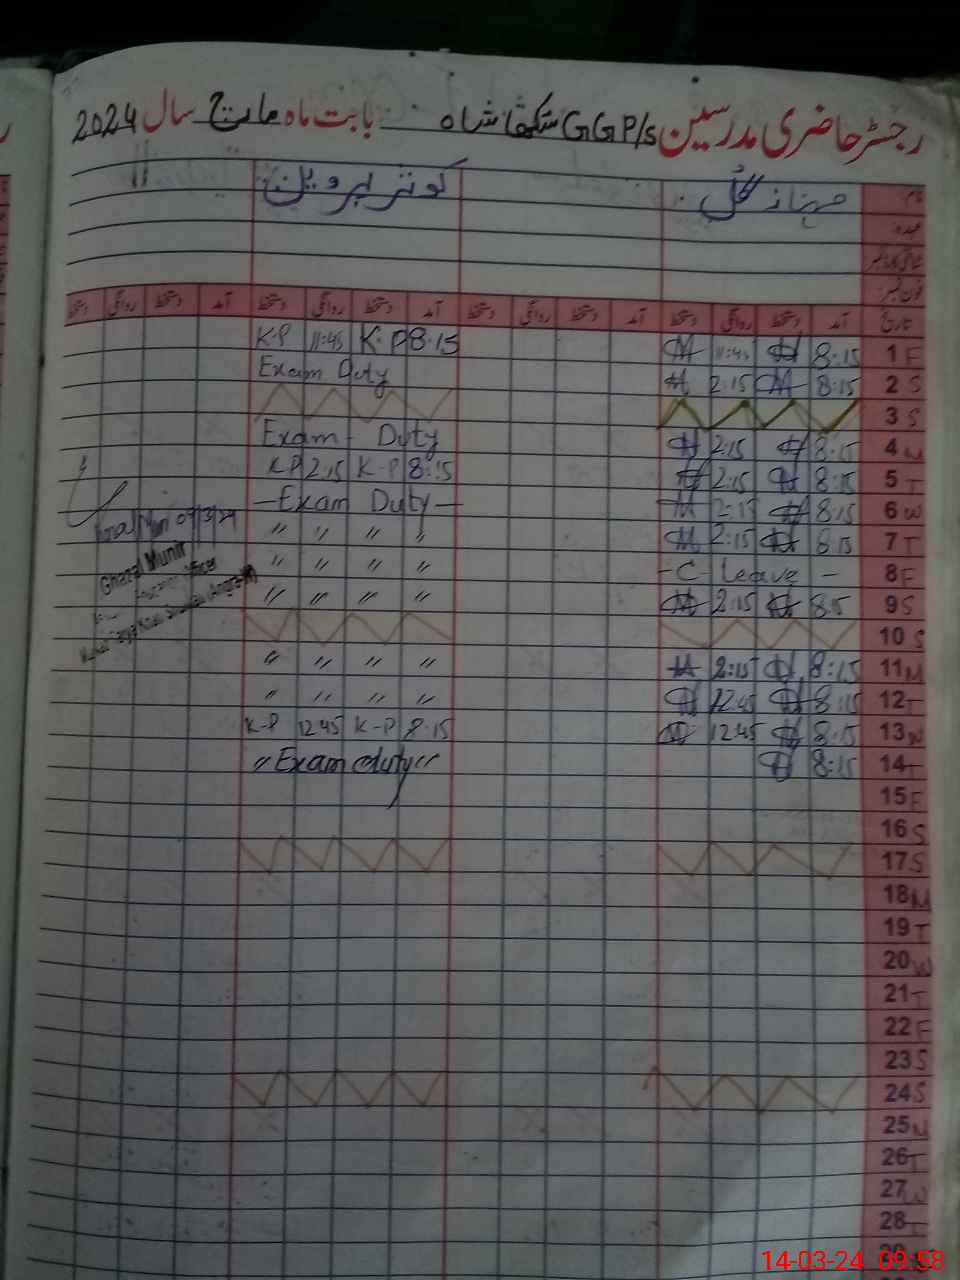 رجسٹر حاضری مدرسین GGP/s شاہ بابت ماہ مارچ سال 2024
مہناز گل کوثر پروین
نام
عہدہ
فون نمبر
تاریخ آمد دستخط روانگی دستخط آمد دستخط روانگی دستخط آمد دستخط روانگی دستخط آمد دستخط روانگی دستخط
1 F 8:15 11:45 8:15 K.P 11:45 K-P
2 S 8:15 2:15 Exam Duty
3 S
4 M 8:15 2:15 Exam - Duty
5 T 8:15 2:15 8:15 K-P 2:15 K P
6 W 8:15 2:15 —Exam Duty—
7 T 8:15 2:15 〃 〃 〃 〃
8 F - C Leave - 〃 〃 〃 〃
9 S 8:15 2:15 〃 〃 〃 〃
10 S
11 M 8:15 2:15 〃 〃 〃 〃
12 T 8:15 12:45 〃 〃 〃 〃
13 W 8:15 12:45 8:15 K-P 12:45 K-P
14 T 8:15 〃 Exam duty 〃
15 F
16 S
17 S
18 M
19 T
20 W
21 T
22 F
23 S
24 S
25 M
26 T
27 W
28 T
09/3/24
Ghazal Munir
Education Officer
14-03-24 09:58